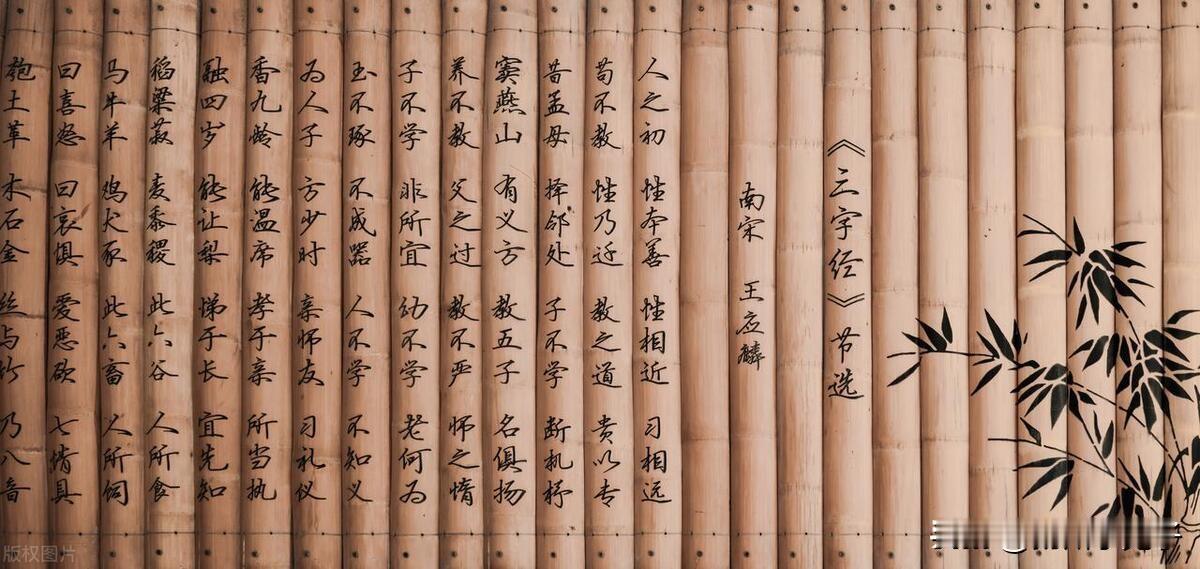 《三字经》节选
南宋 王应麟
人之初 性本善 性相近 习相远
苟不教 性乃迁 教之道 贵以专
昔孟母 择邻处 子不学 断机杼
窦燕山 有义方 教五子 名俱扬
养不教 父之过 教不严 师之惰
子不学 非所宜 幼不学 老何为
玉不琢 不成器 人不学 不知义
为人子 方少时 亲师友 习礼仪
香九龄 能温席 孝于亲 所当执
融四岁 能让梨 悌于长 宜先知
稻粱菽 麦黍稷 此六谷 人所食
马牛羊 鸡犬豕 此六畜 人所饲
曰喜怒 曰哀惧 爱恶欲 七情具
匏土革 木石金 丝与竹 乃八音
版权图片